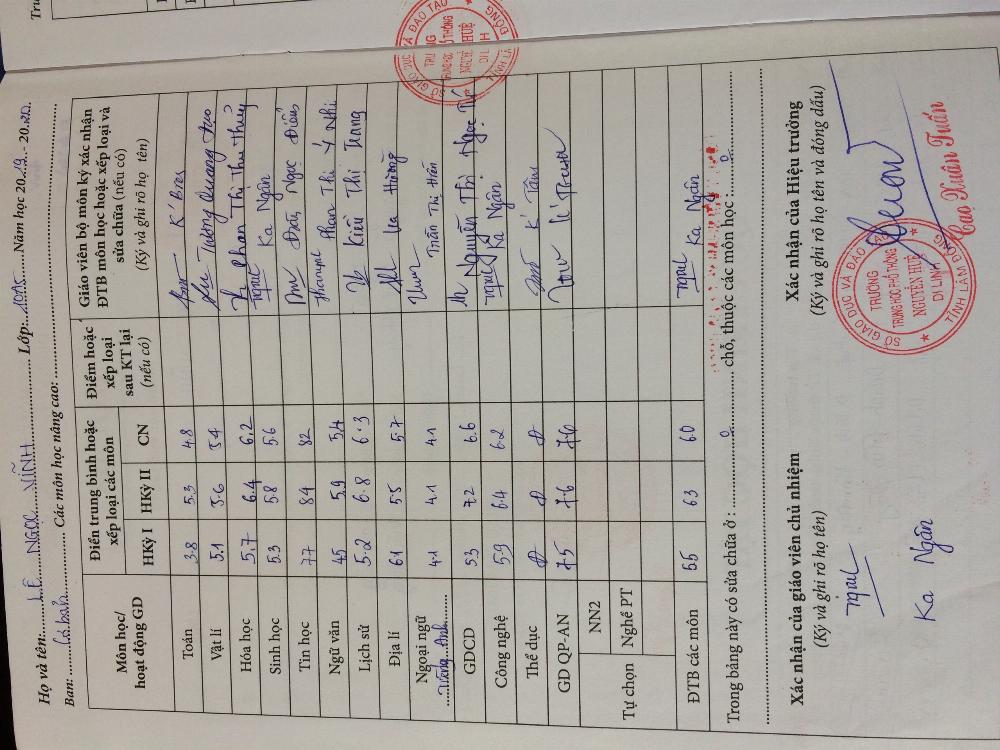 Họ và tên: LÊ NGỌC VĨNH Lớp: 10A5 Năm học 2019 - 2020
Ban: Cơ bản Các môn học nâng cao:
Môn học/ hoạt động GD
Điểm trung bình hoặc xếp loại các môn
HKỳ I HKỳ II CN
Điểm hoặc xếp loại sau KT lại (nếu có)
Giáo viên bộ môn ký xác nhận ĐTB môn học hoặc xếp loại và sửa chữa (nếu có)
(Ký và ghi rõ họ tên)
Toán 3.8 5.3 4.8 K' Bres
Vật lí 5.1 5.6 5.4 Trương Quang Đạo
Hóa học 5.7 6.4 6.2 Phan Thị Thu Thủy
Sinh học 5.3 5.8 5.6 Ka Ngân
Tin học 77 84 82 Ngọc Diễm
Ngữ văn 45 5.9 5.4 Phan Thị Ý Nhi
Lịch sử 5.2 6.8 6.3 Kiều Thị Trang
Địa lí 6.1 5.5 5.7 Hường
Ngoại ngữ Tiếng Anh 4.1 4.1 4.1 Trần Thị Hiền
GDCD 5.3 72 6.6 Nguyễn Thị Ngọc
Công nghệ 5.9 6.4 6.2 Ka Ngân
Thể dục Đ Đ Đ K' Tâm
GD QP-AN 7.5 7.6 7.6
Tự chọn NN2
Nghề PT
ĐTB các môn 5.5 63 6.0 Ka Ngân
Trong bảng này có sửa chữa ở: 0 chỗ, thuộc các môn học: 0
Xác nhận của giáo viên chủ nhiệm
(Ký và ghi rõ họ tên)
Ka Ngân
Xác nhận của Hiệu trưởng
(Ký và ghi rõ họ tên và đóng dấu)
SỞ GIÁO DỤC VÀ ĐÀO TẠO
TRƯỜNG
TRUNG HỌC PHỔ THÔNG
NGUYỄN HUỆ
DI LINH
TỈNH LÂM ĐỒNG
Cao Xuân Tuấn